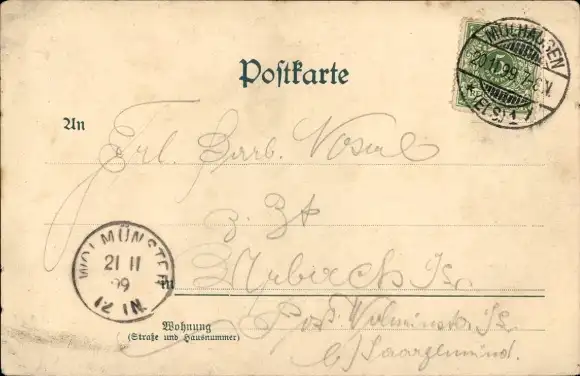 Postkarte
MÜLHAUSEN
20.11.99. 7-8 V.
* (ELS) 1
An
Frl. Barb.
z. Zt
WOLMÜNSTER
21 11
99
12 1N.
in
Wohnung
(Straße und Hausnummer)
Post Wolmünster
b/ Saargemünd.